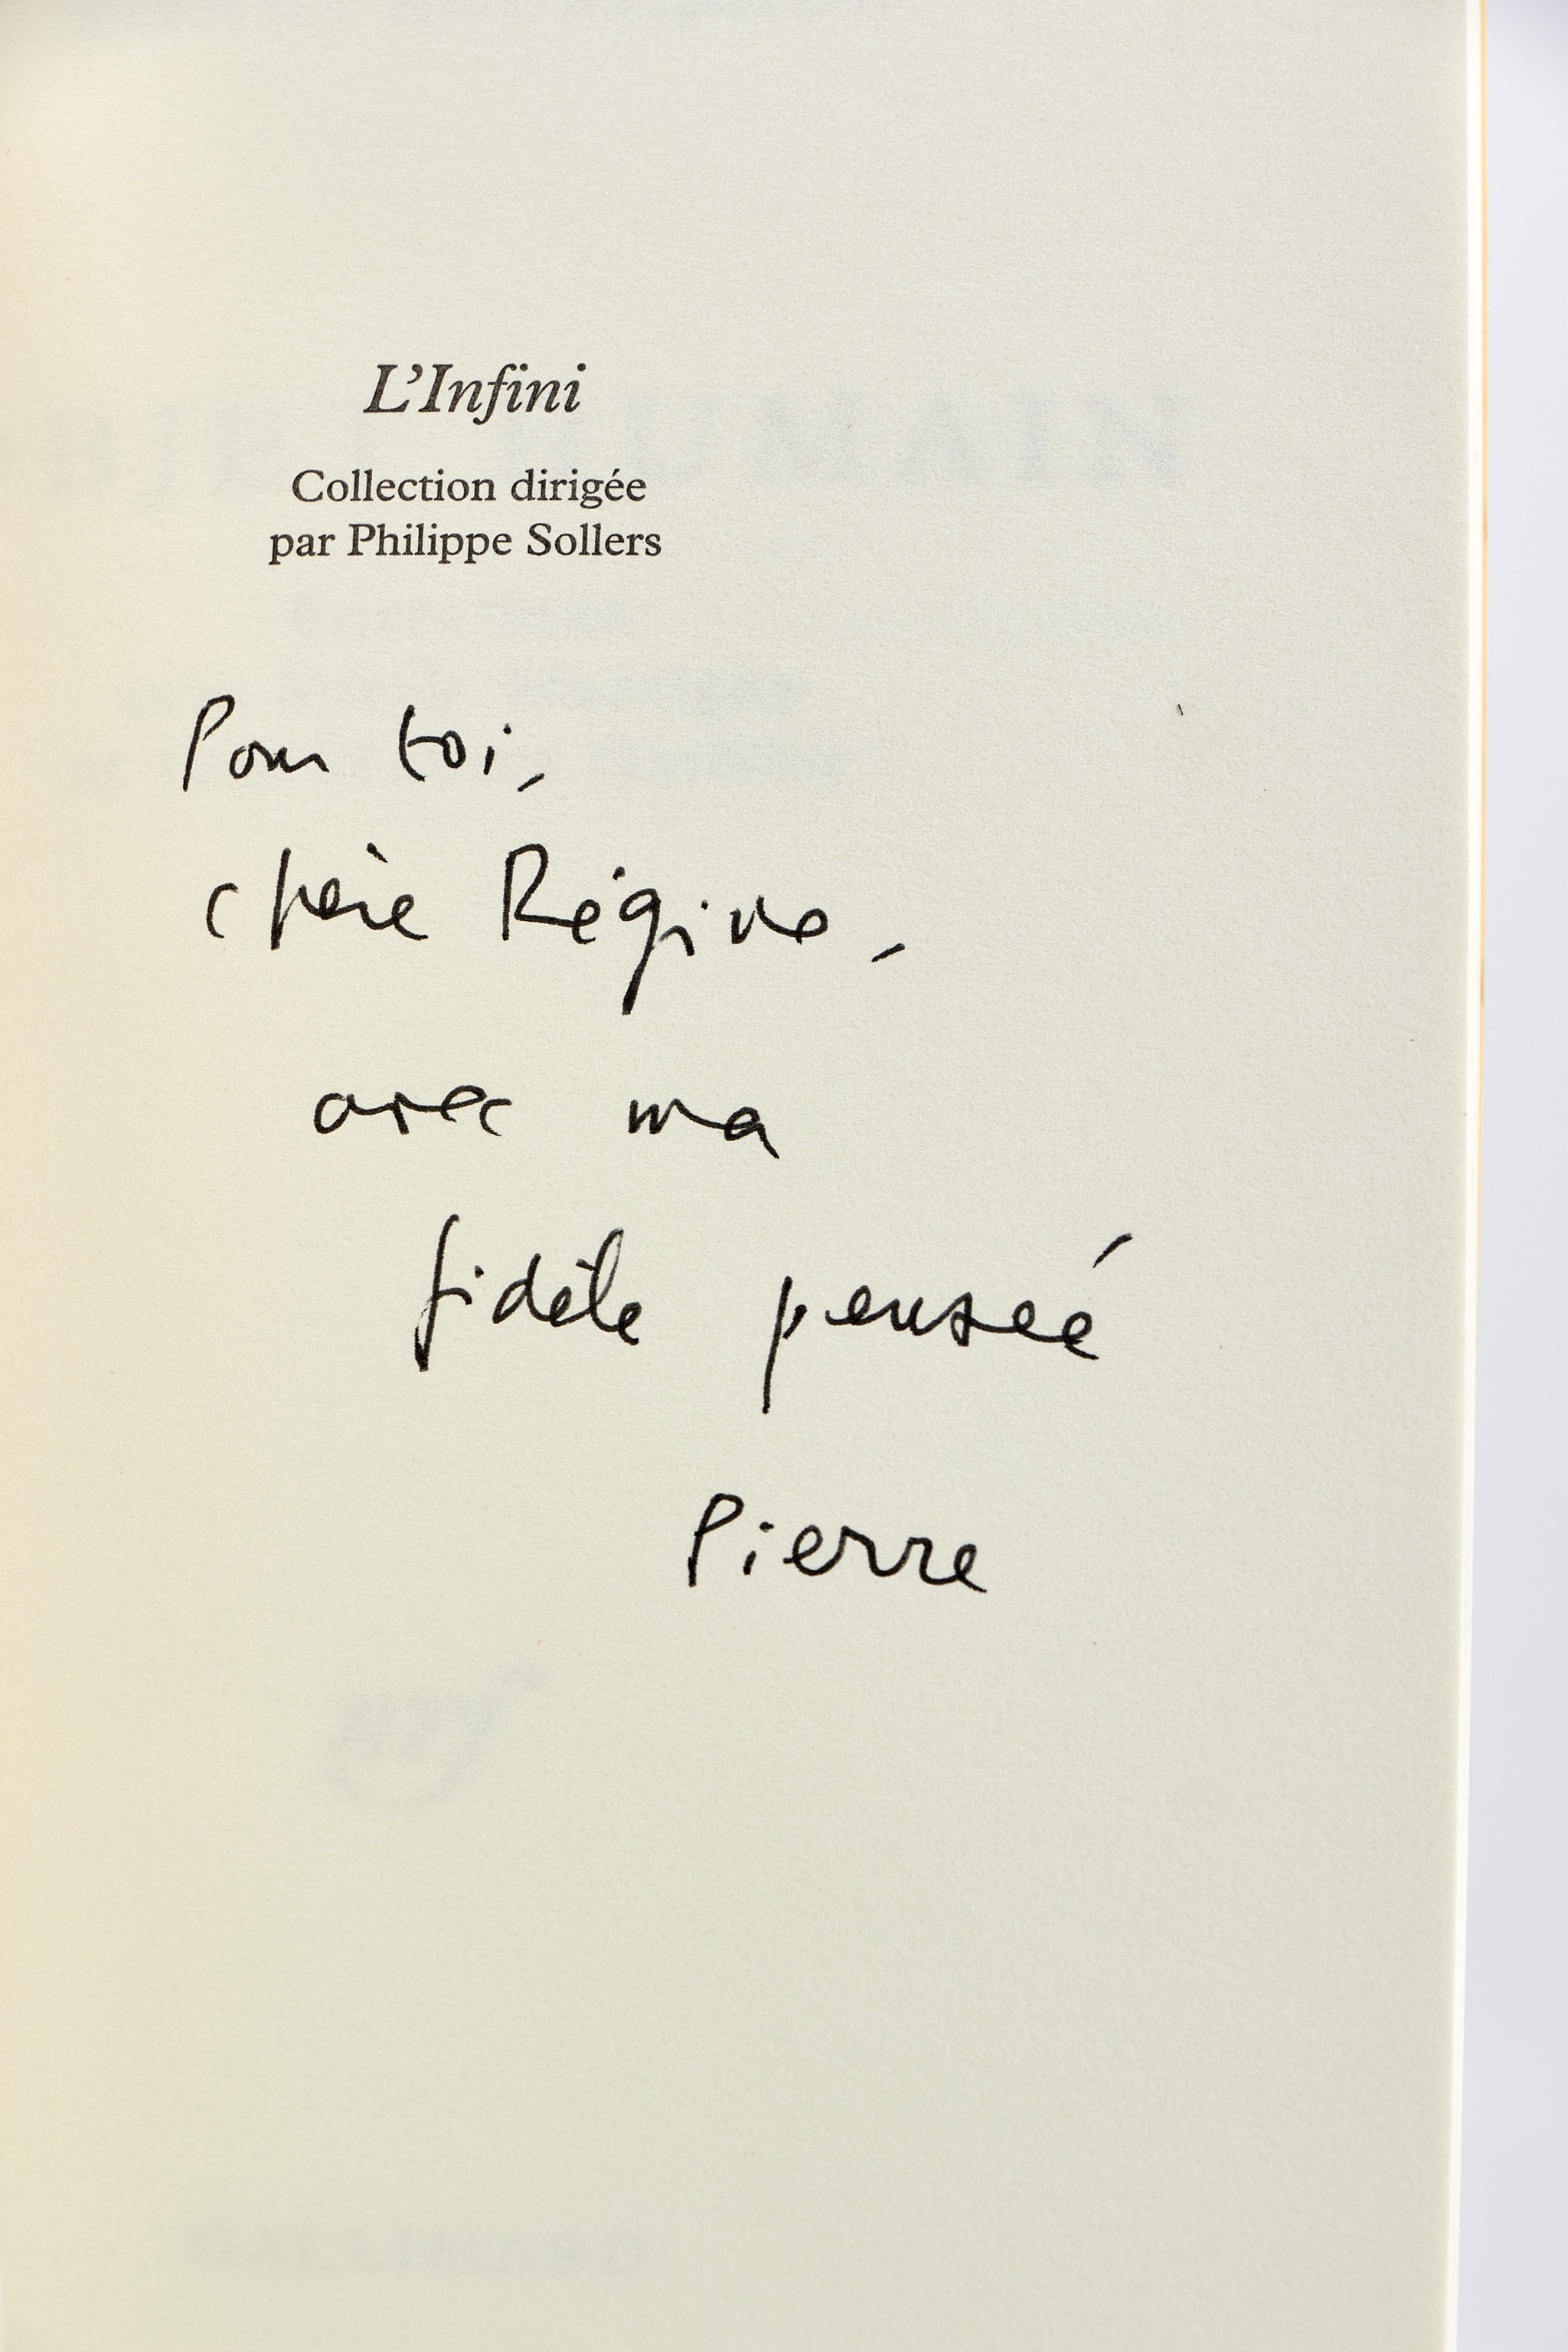 L'Infini
Collection dirigée
par Philippe Sollers
Pour toi,
chère Régine,
avec ma
fidèle pensée
Pierre